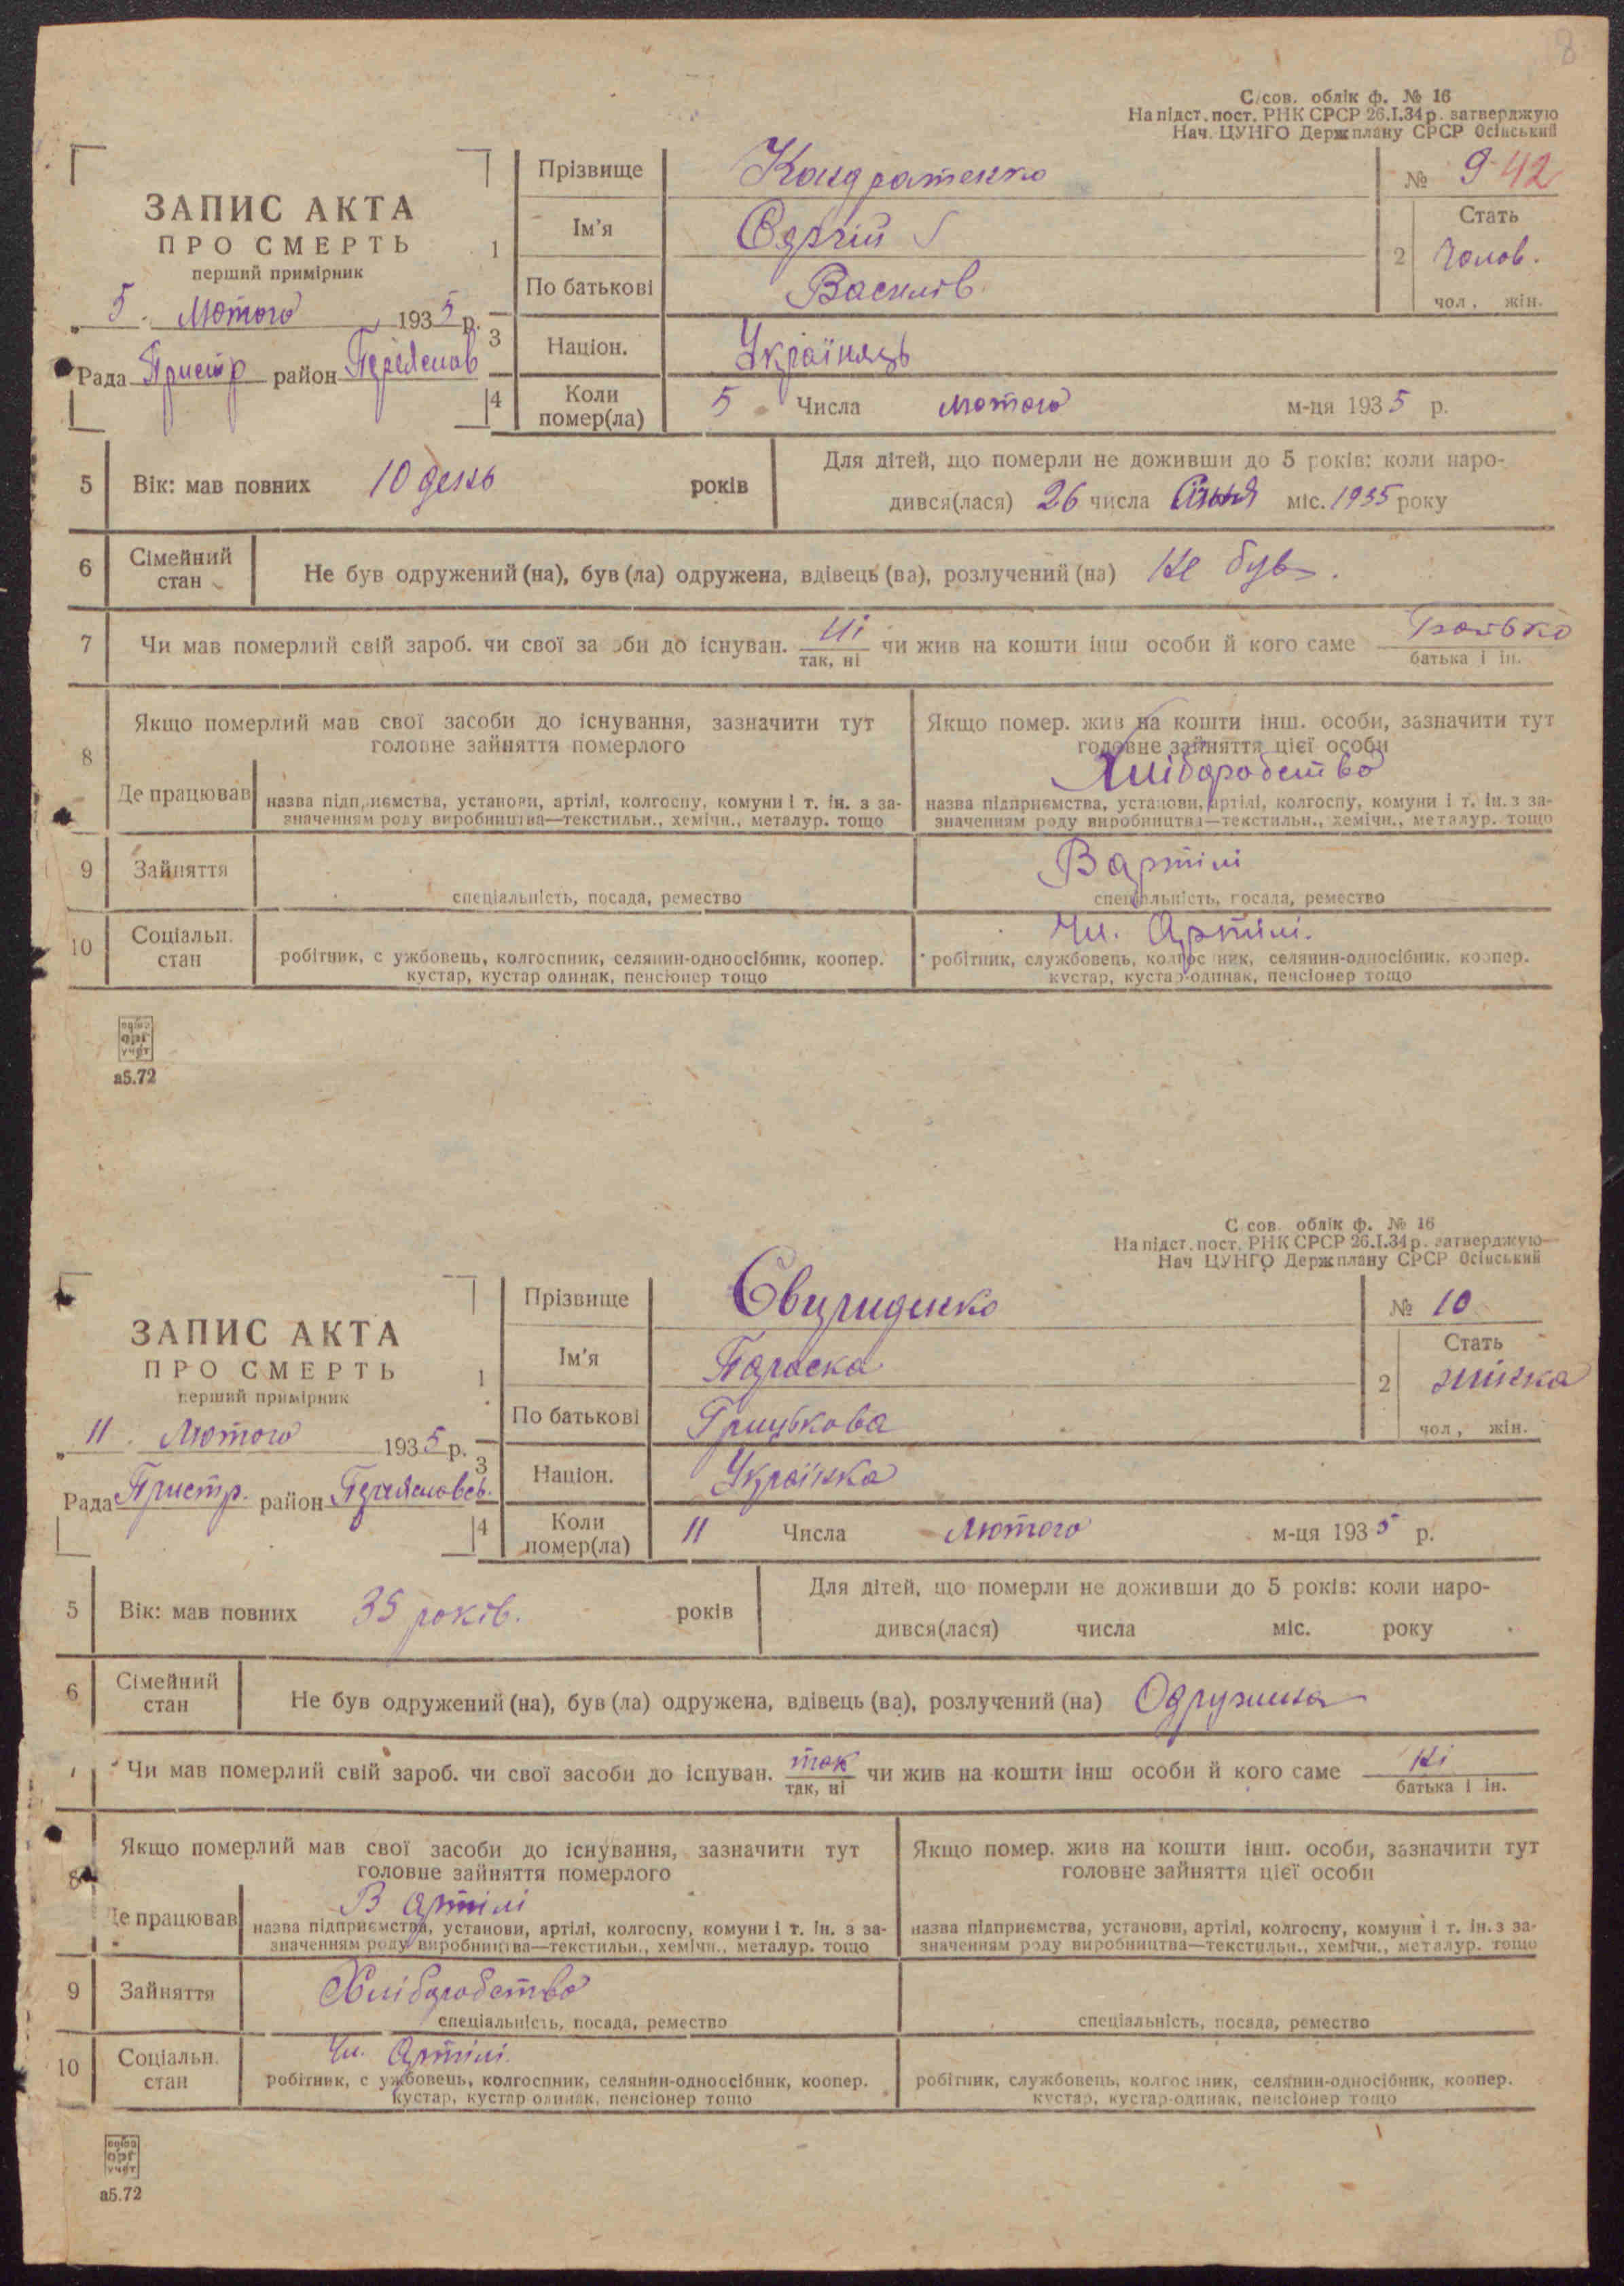 8
С/сов. облік ф. № 16
На підст. пост. РНК СРСР 26.I.34 р. затверджую
Нач. ЦУНГО Держплану СРСР Осінський
ЗАПИС АКТА
ПРО СМЕРТЬ
перший примірник
5 Лютого 1935 р.
Рада Пристр район Переяслав
1 Прізвище Кандратенко
№ 9 42
Ім'я Сергій
2 Стать Чолов.
чол, жін.
По батькові Василів
3 Націон. Українець
4 Коли помер(ла) 5 Числа Лютого м-ця 1935 р.
5 Вік: мав повних 10 день років
Для дітей, що померли не доживши до 5 років: коли наро-
дився(лася) 26 числа Січня міс. 1935 року
6 Сімейний стан Не був одружений (на), був (ла) одружена, вдівець (ва), розлучений (на) Не був.
7 Чи мав померлий свій зароб. чи свої засоби до існуван. Ні чи жив на кошти інш особи й кого саме Батько
так, ні батька і ін.
8 Якщо померлий мав свої засоби до існування, зазначити тут
головне зайняття померлого
Якщо помер. жив на кошти інш. особи, зазначити тут
головне зайняття цієї особи
Хліборобство
Де працював назва підприємства, установи, артілі, колгоспу, комуни і т. ін. з за-
значенням роду виробництва—текстильн., хемічн., металур. тощо
назва підприємства, установи, артілі, колгоспу, комуни і т. ін. з за-
значенням роду виробництва—текстильн., хемічн., металур. тощо
9 Зайняття
В артілі
спеціальність, посада, ремество
спеціальність, посада, ремество
10 Соціальн. стан
Чл. Артілі.
робітник, службовець, колгоспник, селянин-одноосібник, коопер.
кустар, кустар одинак, пенсіонер тощо
робітник, службовець, колгоспник, селянин-односібник, коопер.
кустар, кустар-одинак, пенсіонер тощо
орг
учет
а5.72
С сов. облік ф. № 16
На підст. пост. РНК СРСР 26.I.34 р. затверджую
Нач ЦУНГО Держплану СРСР Осінський
ЗАПИС АКТА
ПРО СМЕРТЬ
перший примірник
11 Лютого 1935 р.
Рада Пристр. район Переяславсь.
1 Прізвище Свириденко
№ 10
Ім'я Параска
2 Стать жінка
чол, жін.
По батькові Грицькова
3 Націон. Українка
4 Коли помер(ла) 11 Числа Лютого м-ця 1935 р.
5 Вік: мав повних 35 років. років
Для дітей, що померли не доживши до 5 років: коли наро-
дився(лася) числа міс. року
6 Сімейний стан Не був одружений (на), був (ла) одружена, вдівець (ва), розлучений (на) Одружина
7 Чи мав померлий свій зароб. чи свої засоби до існуван. так чи жив на кошти інш особи й кого саме Ні
так, ні батька і ін.
8 Якщо померлий мав свої засоби до існування, зазначити тут
головне зайняття померлого
Якщо помер. жив на кошти інш. особи, зазначити тут
головне зайняття цієї особи
В артілі
Де працював назва підприємства, установи, артілі, колгоспу, комуни і т. ін. з за-
значенням роду виробництва—текстильн., хемічн., металур. тощо
назва підприємства, установи, артілі, колгоспу, комуни і т. ін. з за-
значенням роду виробництва—текстильн., хемічн., металур. тощо
9 Зайняття Хліборобство
спеціальність, посада, ремество
спеціальність, посада, ремество
10 Соціальн. стан Чл. Артілі.
робітник, службовець, колгоспник, селянин-одноосібник, коопер.
кустар, кустар одинак, пенсіонер тощо
робітник, службовець, колгоспник, селянин-односібник, коопер.
кустар, кустар-одинак, пенсіонер тощо
орг
учет
а5.72